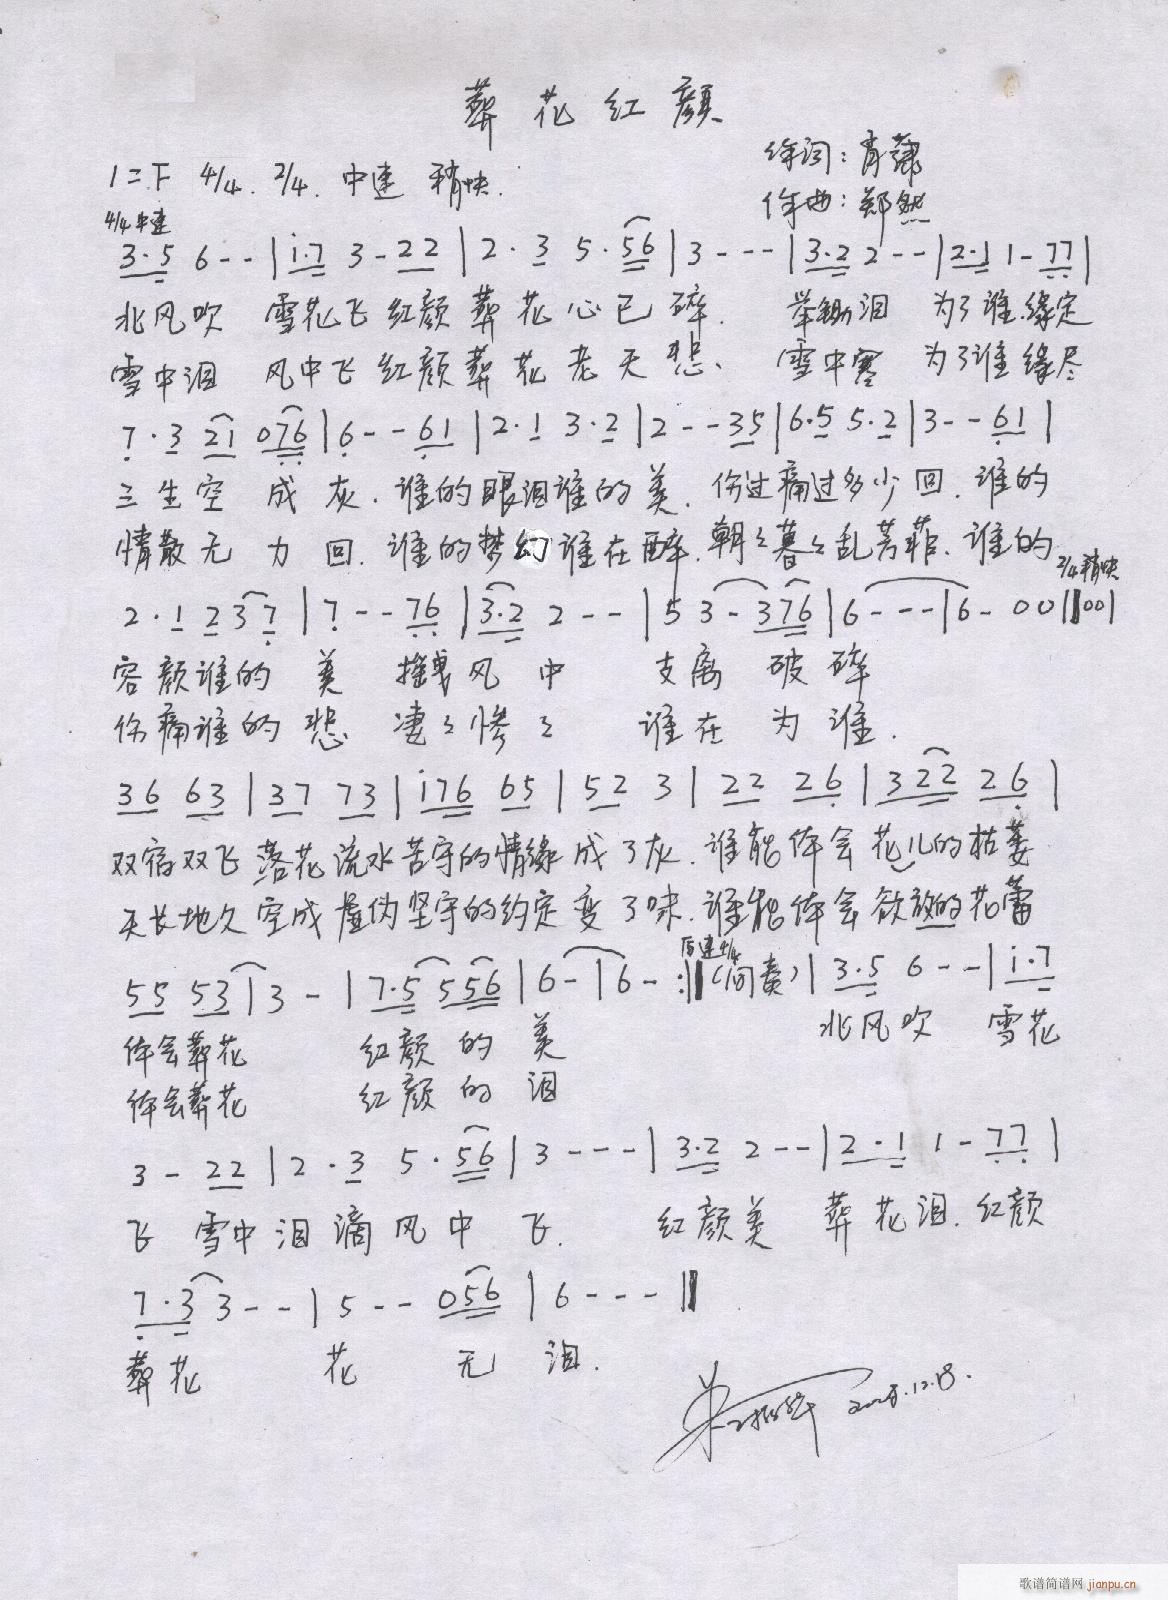 葬花红颜
作词：肖
1=F 4/4. 2/4. 中速 稍快.
作曲：郑然
4/4中速
3·5 6 - - | i·7 3 - 22 | 2·3 5·56 | 3 - - - | 3·2 2 - - | 2·1 1 - 77 |
北风吹 雪花飞红颜葬花心已碎. 举锄泪 为了谁.缘定
雪中泪 风中飞红颜葬花老天悲、 雪中寒 为了谁缘尽
7·3 21 076 | 6 - - 61 | 2·1 3·2 | 2 - - 35 | 6·5 5·2 | 3 - - 61 |
三生空 成灰.谁的眼泪谁的美.伤过痛过多少回.谁的
情散无 力回.谁的梦幻谁在醉.朝々暮々乱芳菲.谁的
2/4稍快
2·1 237 | 7 - - 76 | 3·2 2 - - | 5 3 - 376 | 6 - - - | 6 - 00 || 00 |
容颜谁的 美 摇曳风中 支离破碎
伤痛谁的悲 凄々惨々 谁在为谁.
36 63 | 37 73 | i76 65 | 52 3 | 22 26 | 322 26 |
双宿双飞落花流水苦守的情缘成了灰.谁能体会花儿的枯萎
天长地久空成虚伪坚守的约定变了味.谁能体会欲放的花蕾
后速4/4
55 53 | 3 - | 7·5 556 | 6 - | 6 - :|| (间奏) | 3·5 6 - - | i·7
体会葬花 红颜的美 北风吹 雪花
体会葬花 红颜的泪
3 - 22 | 2·3 5·56 | 3 - - - | 3·2 2 - - | 2·1 1 - 77 |
飞 雪中泪滴风中飞. 红颜美 葬花泪.红颜
7·3 3 - - | 5 - - 056 | 6 - - - ||
葬花 花 无 泪.
歌谱简谱网 jianpu.cn